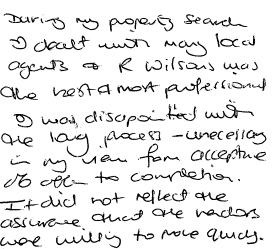 During my property search
I dealt with many local
agents & R Wilsons was
the best & most professional
I was disapointed with
the long process - unecessary
in my view from acceptance
of offer to completion.
It did not reflect the
assurance that the vendors
were willing to move quickly.